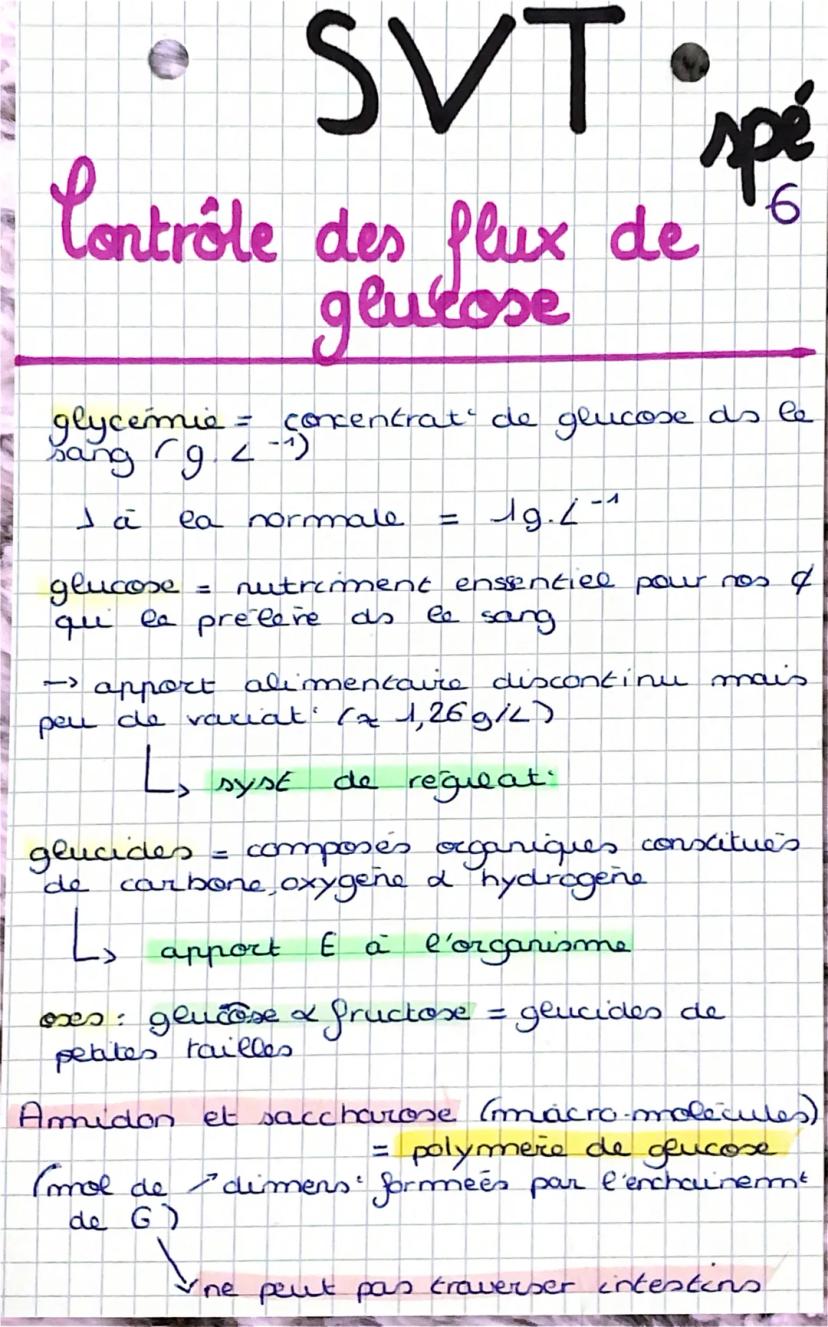 SVT
spé
6
Contrôle des flux de
glucose
glycémie = concentrat° de glucose ds le
sang (g.L⁻¹)
à la normale = 1g.L⁻¹
glucose = nutriment enssentiel pour nos ₵
qui le prélève ds le sang
→ apport alimentaire discontinu mais
peu de variat° (≈ 1,26g/L)
↳ syst de régulat°
glucides = composés organiques constitués
de carbone, oxygène & hydrogène
↳ apport E à l'organisme
oses : glucose & fructose = glucides de
petites tailles
Amidon et saccharose (macro-molécules)
= polymère de glucose
(mol de ↗ dimens° formées par l'enchainemt
de G)
↘ ne peut pas traverser intestins